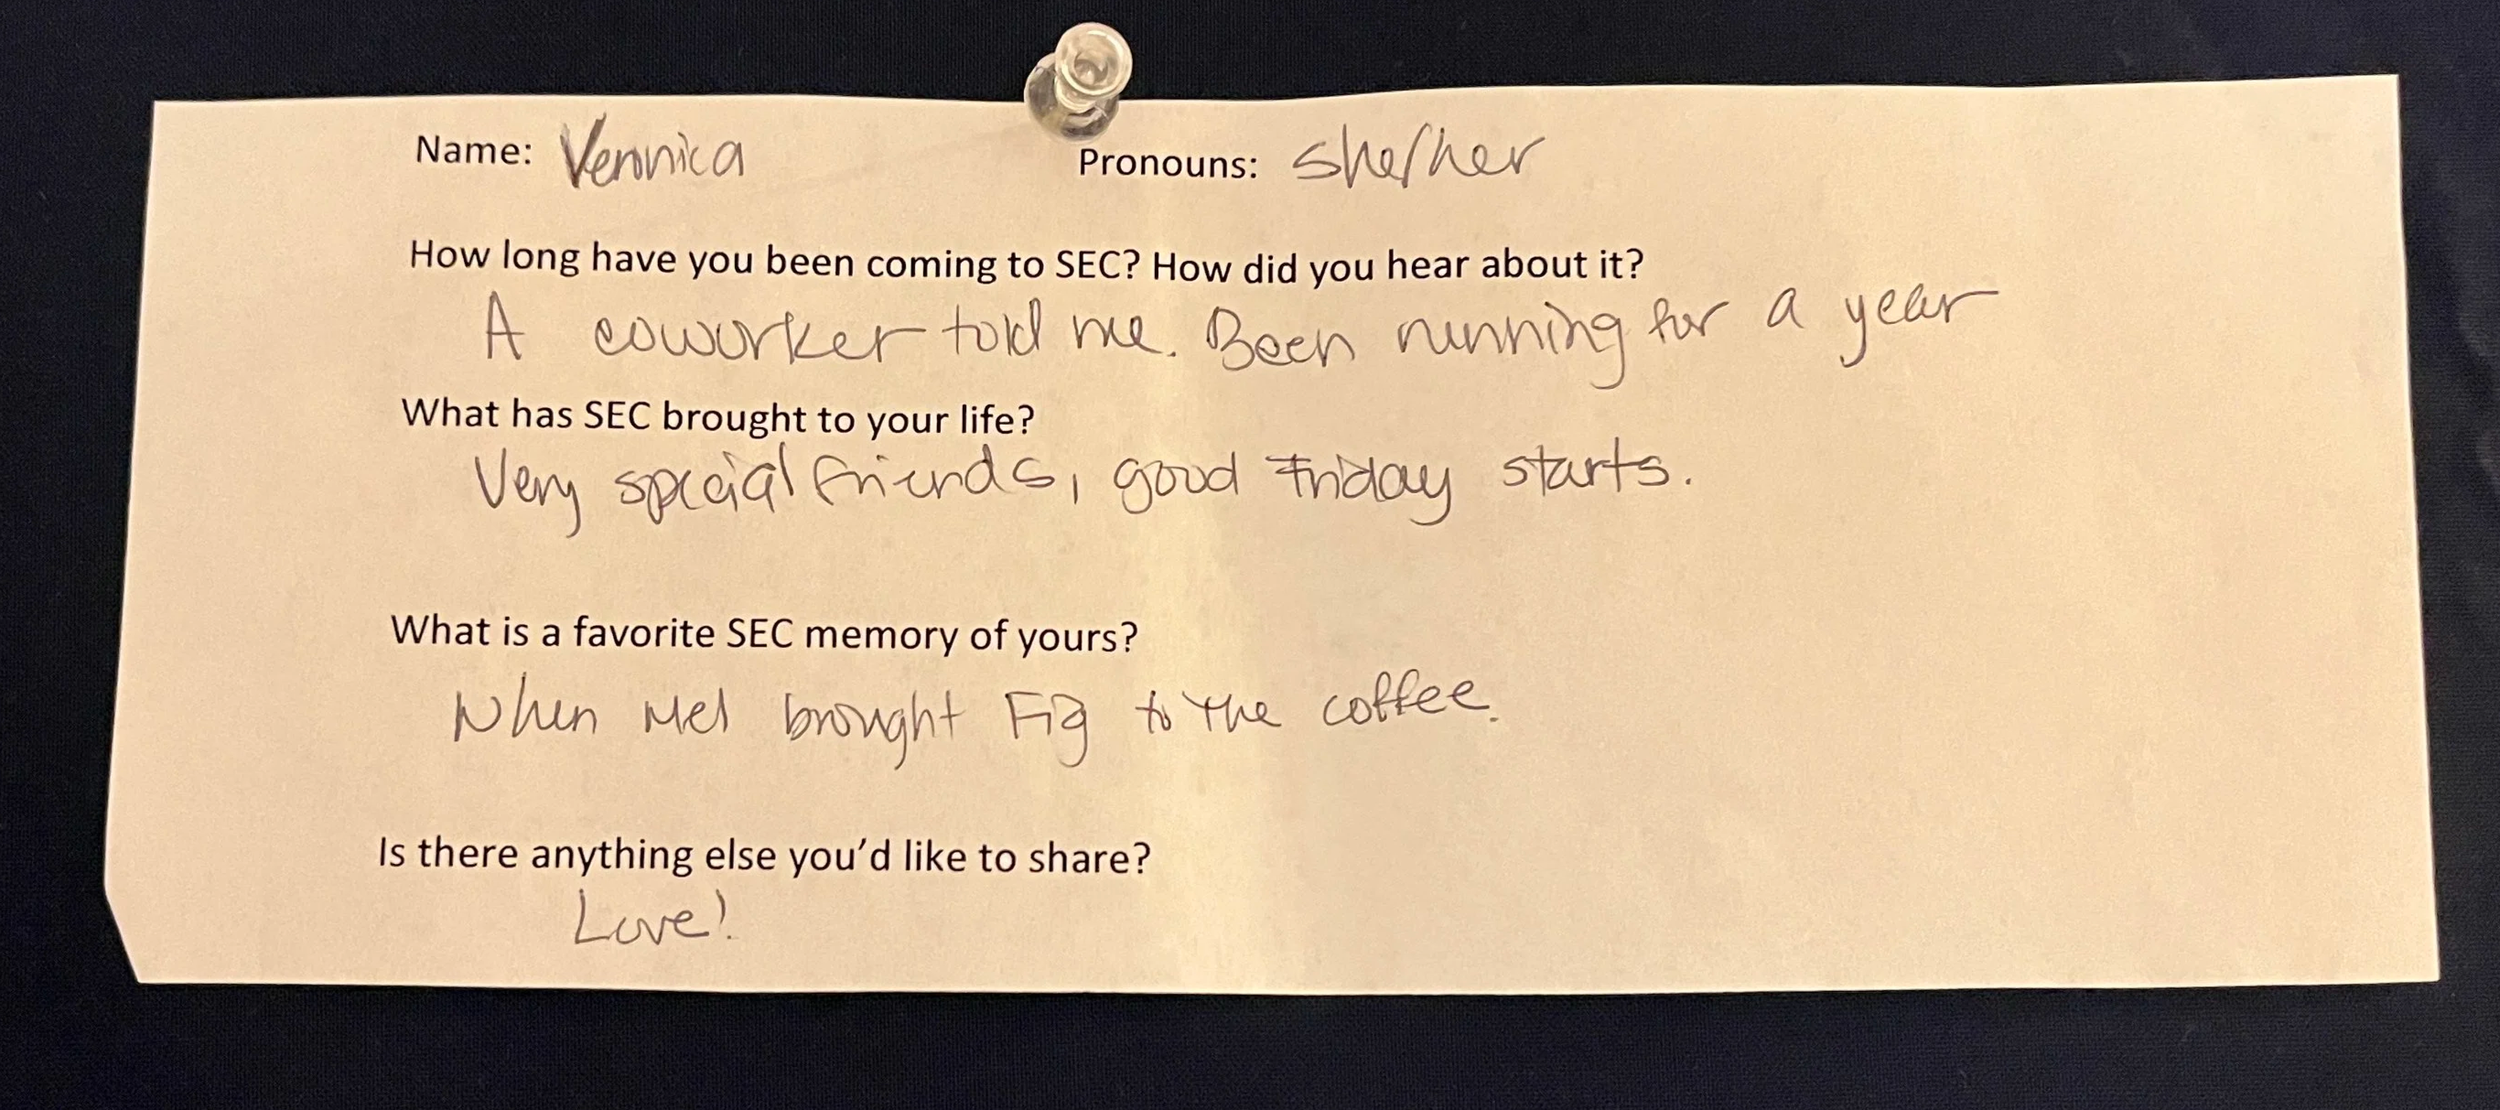 Name: Veronica Pronouns: she/her
How long have you been coming to SEC? How did you hear about it?
A coworker told me. Been running for a year
What has SEC brought to your life?
Very special friends, good Friday starts.
What is a favorite SEC memory of yours?
When Mel brought Fig to the coffee.
Is there anything else you'd like to share?
Love!